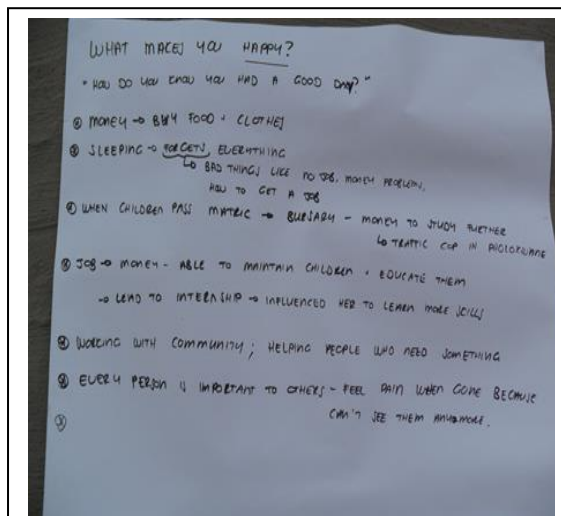 WHAT MAKES YOU HAPPY?
"HOW DO YOU KNOW YOU HAD A GOOD DAY?"
MONEY → BUY FOOD + CLOTHES
SLEEPING → FORGETS, EVERYTHING
↳ BAD THINGS LIKE NO JOB, MONEY PROBLEMS,
HOW TO GET A JOB
WHEN CHILDREN PASS MATRIC → BURSARY - MONEY TO STUDY FURTHER
↳ TRAFFIC COP IN
JOB → MONEY - ABLE TO MAINTAIN CHILDREN + EDUCATE THEM
→ LEAD TO INTERNSHIP → INFLUENCED HER TO LEARN MORE SKILLS
WORKING WITH COMMUNITY; HELPING PEOPLE WHO NEED SOMETHING
EVERY PERSON IS IMPORTANT TO OTHERS - FEEL PAIN WHEN GONE BECAUSE
CAN'T SEE THEM ANYMORE.